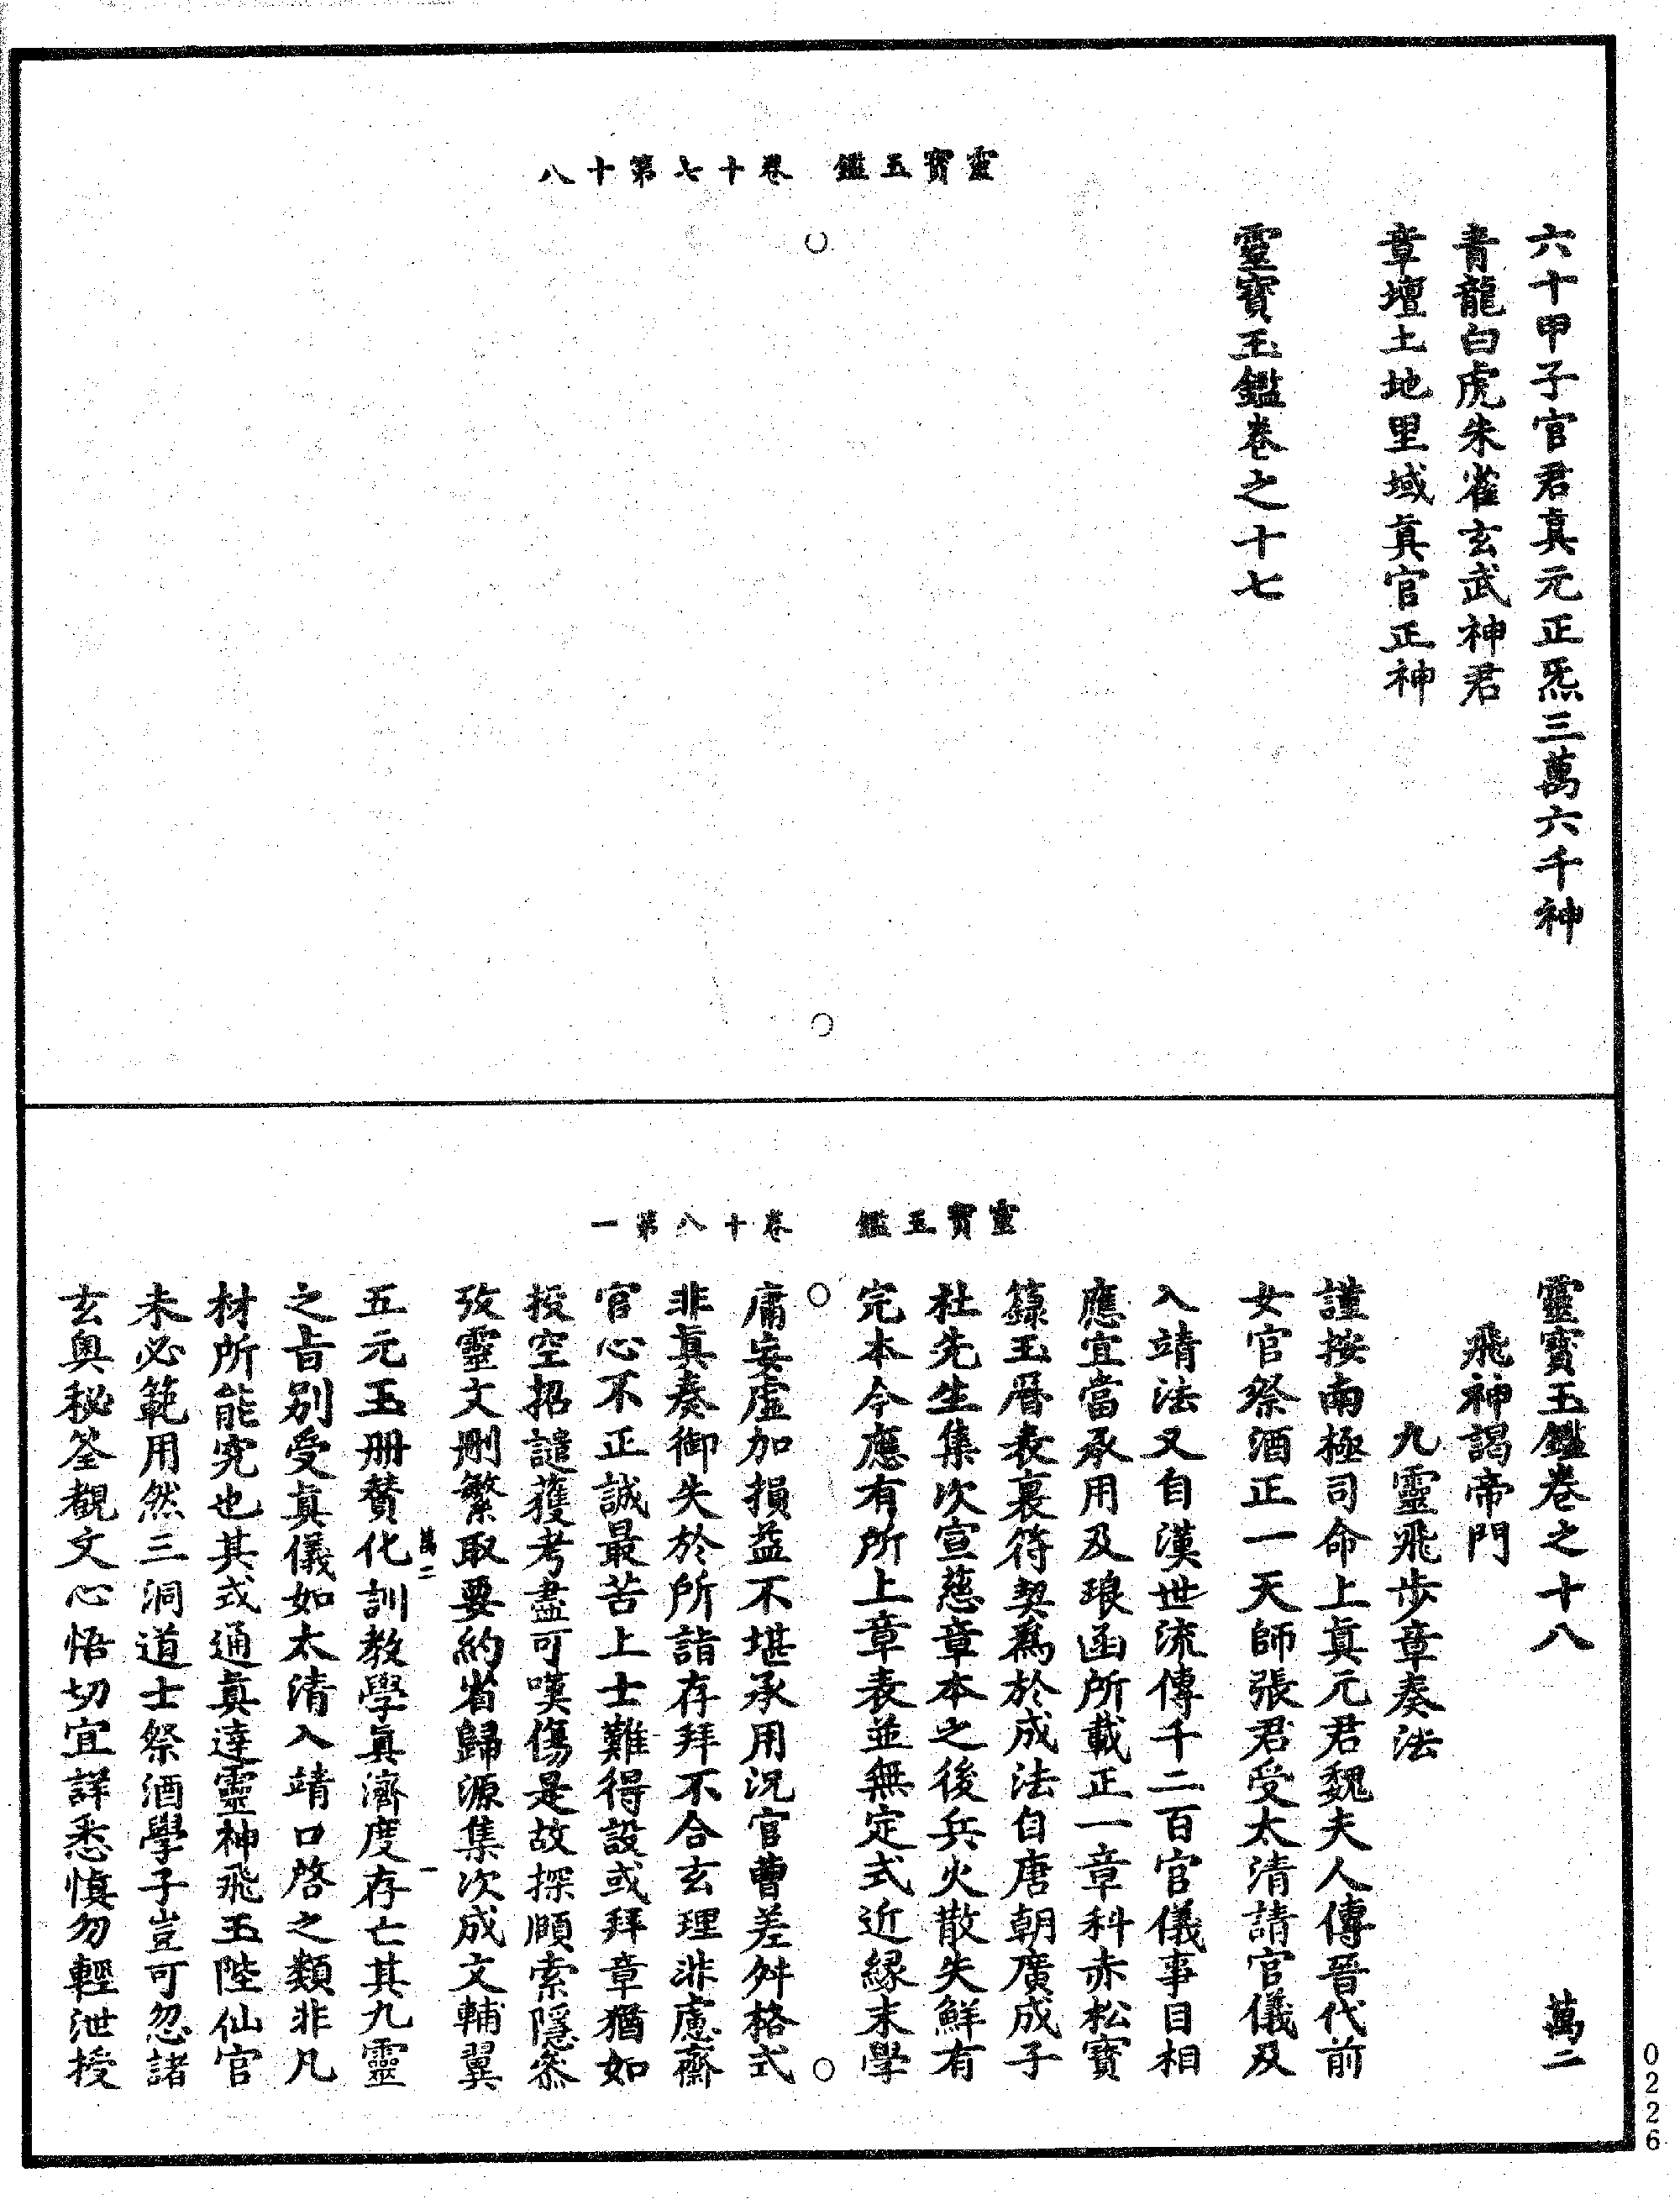 靈寶玉鑑　卷十七第十八
六十甲子官君真元正炁三萬六千神
青龍白虎朱雀玄武神君
章壇土地里域真官正神
靈寶玉鑑卷之十七
靈寶玉鑑　卷十八第一
靈寶玉鑑卷之十八　萬二
飛神謁帝門
九靈飛步章奏法
謹按南極司命上真元君魏夫人傳晉代前
女官祭酒正一天師張君受太清請官儀及
入靖法又自漢世流傳千二百官儀事目相
應宜當承用及琅函所載正一章科赤松寶
籙玉曆表裏符契爲於成法自唐朝廣成子
杜先生集次宣慈章本之後兵火散失鮮有
完本今應有所上章表並無定式近緣末學
庸妄虛加損益不堪承用況官曹差舛格式
非真奏御失於所詣存拜不合玄理非慮齋
官心不正誠最苦上士難得設或拜章猶如
投空招譴獲考盡可嘆傷是故探頤索隱叅
攷靈文刪繁取要約省歸源集次成文輔翼
萬二　一
五元玉册贊化訓教學真濟度存亡其九靈
之旨別受真儀如太清入靖口啓之類非凡
材所能究也其或通真達靈神飛玉陛仙官
未必範用然三洞道士祭酒學子豈可忽諸
玄奧秘筌覩文心悟切宜詳悉慎勿輕泄授
0226